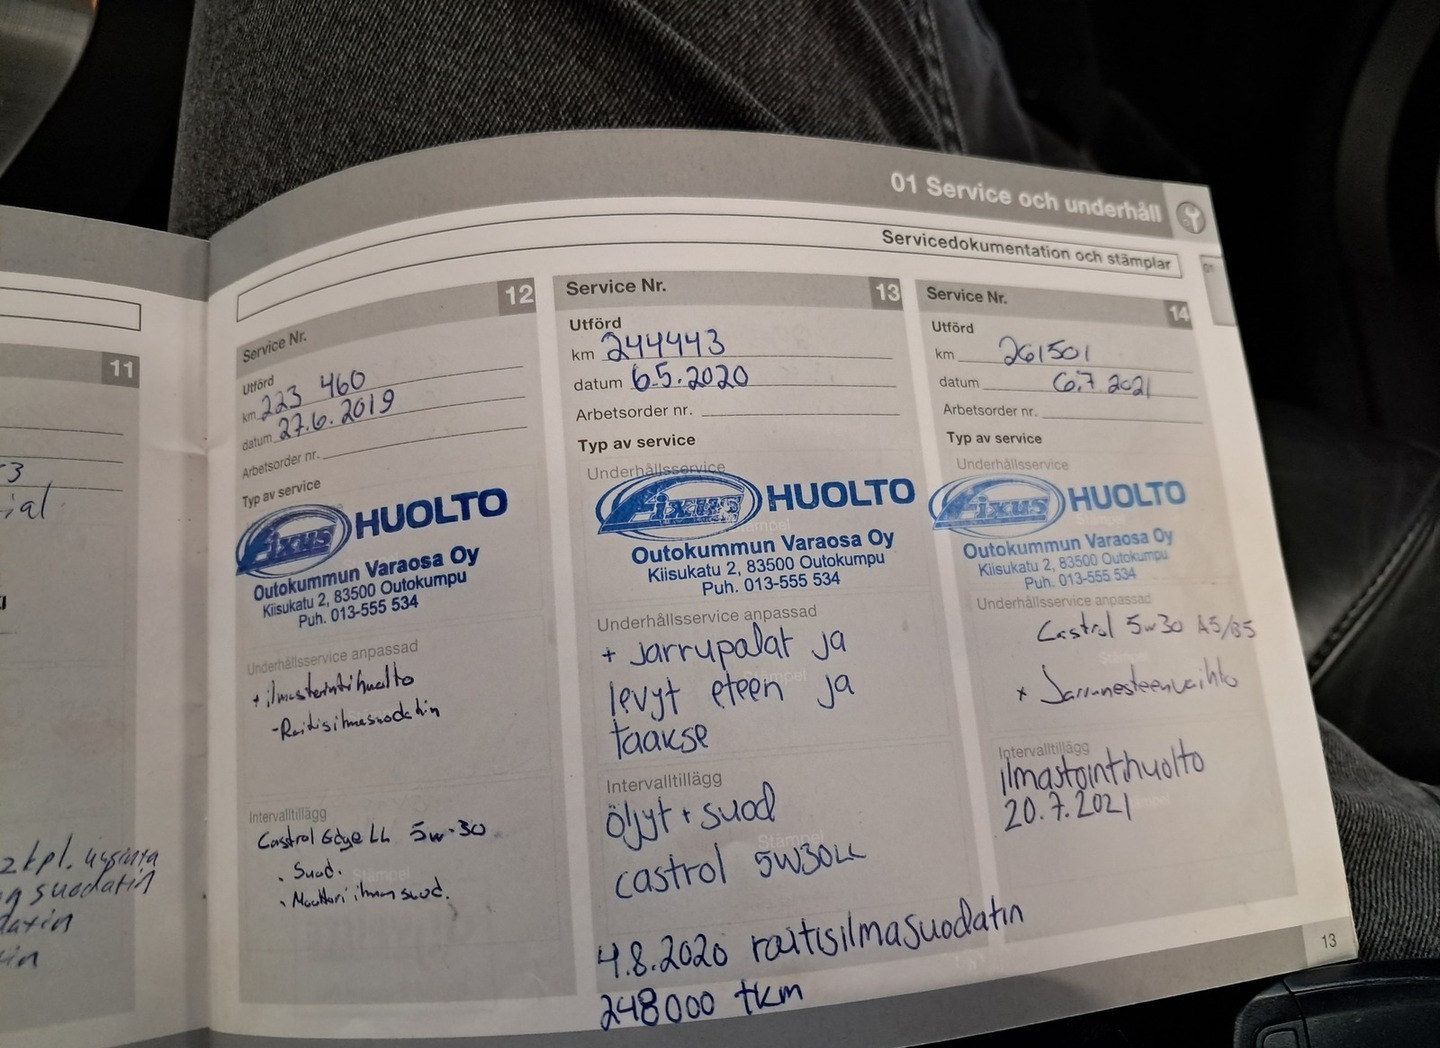 01 Service och underhåll
Servicedokumentation och stämplar
01
11
Service Nr. 12
Utförd
km 223 460
datum 27.6.2019
Arbetsorder nr.
Typ av service
Fixus HUOLTO
Outokummun Varaosa Oy
Kiisukatu 2, 83500 Outokumpu
Puh. 013-555 534
Underhållsservice anpassad
+ ilmastointihuolto
- Raitisilmasuodatin
Intervalltillägg
Castrol Edge LL 5w-30
. Suod.
Stämpel
. Moottori ilman suod.
Service Nr. 13
Utförd
km 244443
datum 6.5.2020
Arbetsorder nr.
Typ av service
Underhållsservice
Fixus HUOLTO
Stämpel
Outokummun Varaosa Oy
Kiisukatu 2, 83500 Outokumpu
Puh. 013-555 534
Underhållsservice anpassad
+ Jarrupalat ja
levyt eteen ja
Stämpel
taakse
Intervalltillägg
öljyt + suod
Stämpel
castrol 5W30LL
4.8.2020 raitisilmasuodatin
248000 tkm
Service Nr. 14
Utförd
km 261501
datum 6.7 2021
Arbetsorder nr.
Typ av service
Underhållsservice
Fixus HUOLTO
Stämpel
Outokummun Varaosa Oy
Kiisukatu 2, 83500 Outokumpu
Puh. 013-555 534
Underhållsservice anpassad
Castrol 5w30 A5/B5
Stämpel
+ Jarrunesteenvaihto
Intervalltillägg
ilmastointihuolto
20.7.2021
Stämpel
13
2 kpl.
suodatin